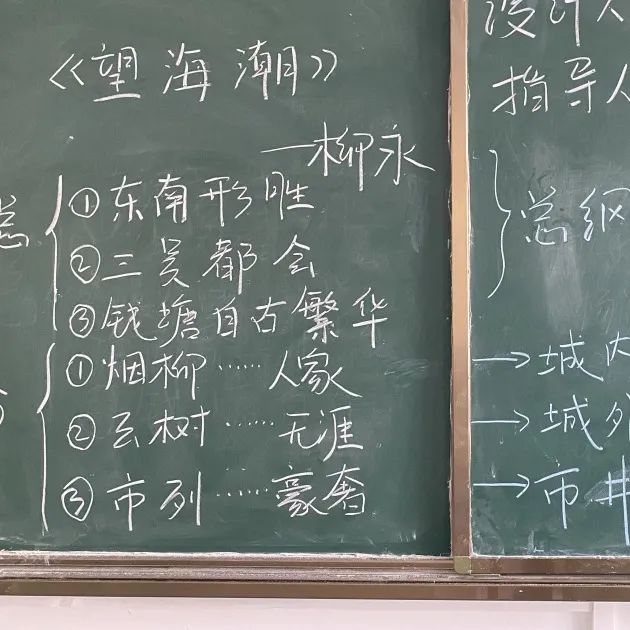 《望海潮》
——柳永
总
①东南形胜
②三吴都会
③钱塘自古繁华
①烟柳……人家
②云树……无涯
③市列……豪奢
设计
指导人
总纲
→城内
→城外
→市井